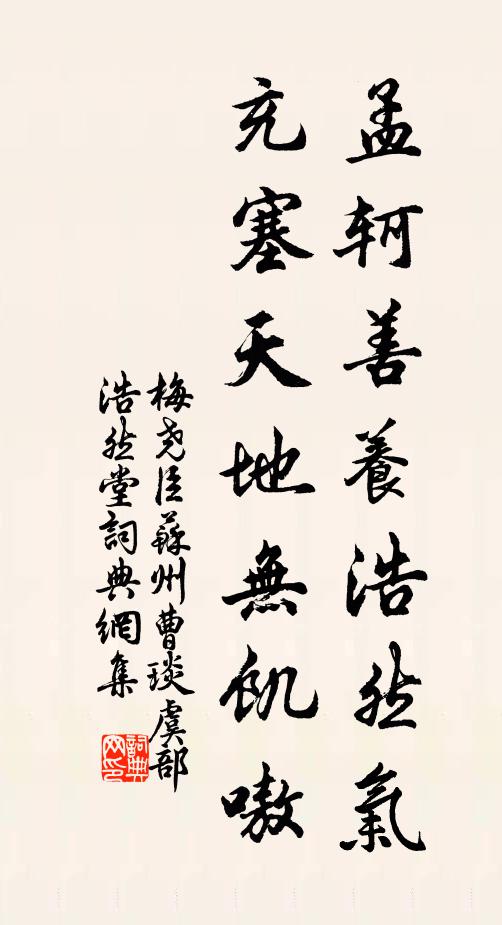 孟轲善養浩然氣
充塞天地無飢嗷
梅尧臣蘇州曹琰虞部
浩然堂詞典網集
詞典
网印